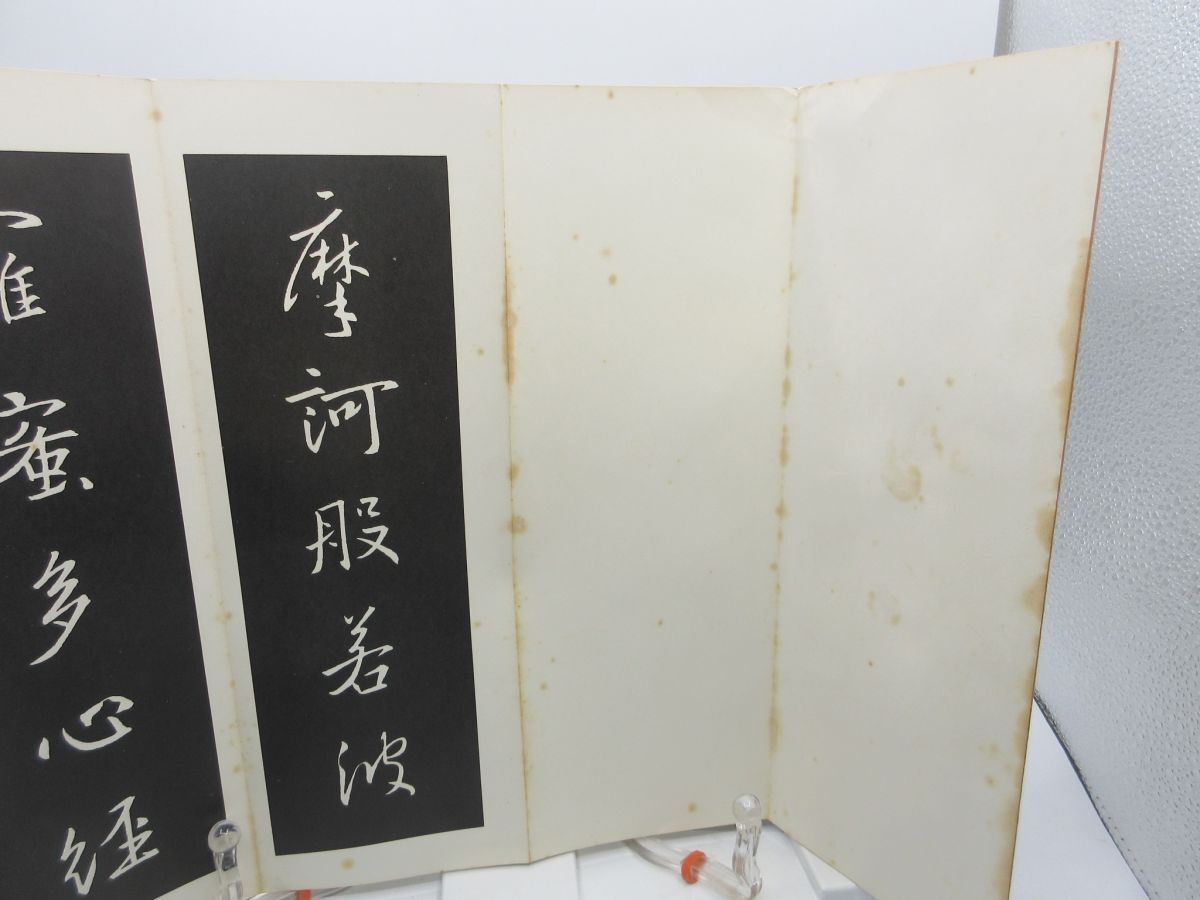 摩訶般若波
羅蜜多心経